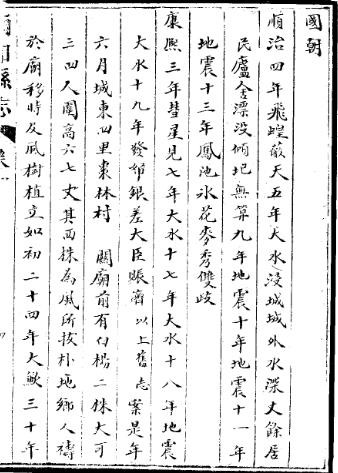 國朝
順治四年飛蝗蔽天五年大水浸城城外水深丈餘居
民廬舍漂没傾圮無算九年地震十年地震十一年
地震十三年鳳池氷花麥秀雙歧
康熙三年彗星見七年大水十七年大水十八年地震
大水十九年發帑銀差大臣賑濟以上舊志案是年
六月城東四里棗林村 關廟前有白楊二株大可
三四人圍高六七丈其西株為風所拔扑地鄉人禱
於廟移時反風樹植立如初二十四年大歉三十年
縣志